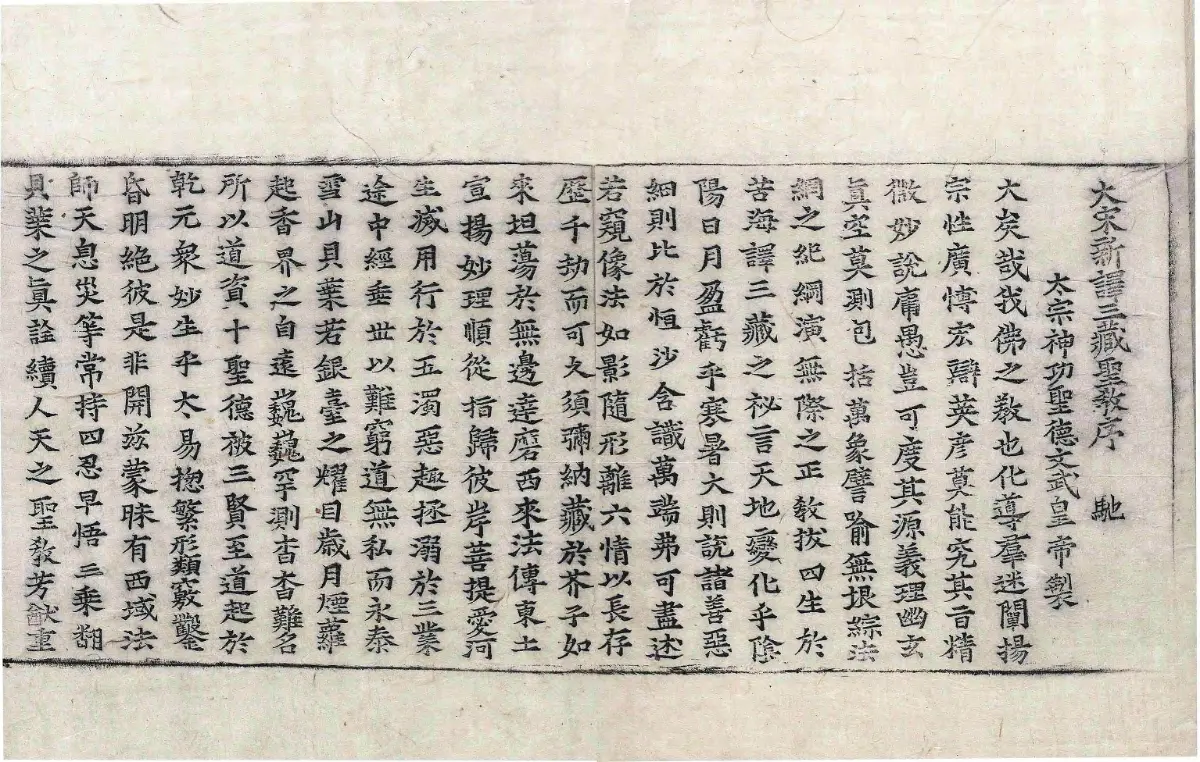 大宋新譯三藏聖教序 馳
太宗神功聖德文武皇帝製
大矣哉我佛之教也化導羣迷闡揚
宗性廣愽宏辯英彦莫能究其旨精
微妙說庸愚豈可度其源義理幽玄
眞空莫測包括萬象譬喻無垠綜法
網之紀綱演無際之正教拔四生於
苦海譯三藏之祕言天地變化乎陰
陽日月盈虧乎寒暑大則說諸善惡
細則比於恒沙含識萬端弗可盡述
若窺像法如影隨形離六情以長存
歷千劫而可久須彌納藏於芥子如
來坦蕩於無邊達磨西來法傳東土
宣揚妙理順從指歸彼岸菩提愛河
生滅用行於五濁惡趣拯溺於三業
途中經垂世以難窮道無私而永泰
雪山貝葉若銀臺之耀目歲月煙蘿
起香界之自遠巍巍罕測杳杳難名
所以道資十聖德被三賢至道起於
乾元衆妙生乎太易揔繁形類竅鑿
昏明絶彼是非開兹蒙昧有西域法
師天息災等常持四忍早悟三乘翻
貝葉之眞詮續人天之聖教芳猷重